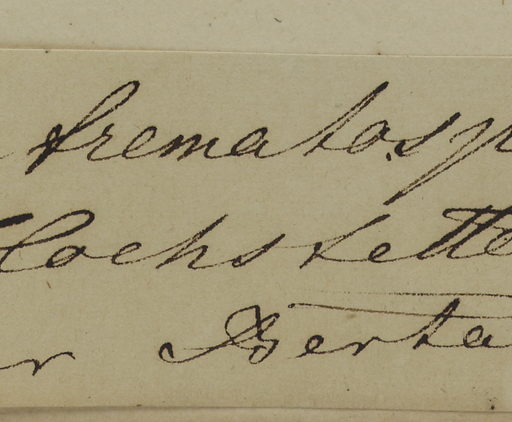 trematosp
Hochstette
r Berta